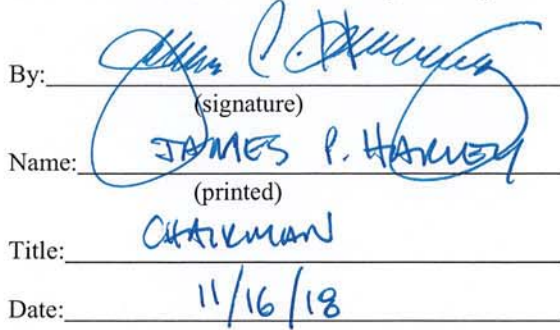 By:
(signature)
Name: JAMES P. HARVEY
(printed)
Title: CHAIRMAN
Date: 11/16/18